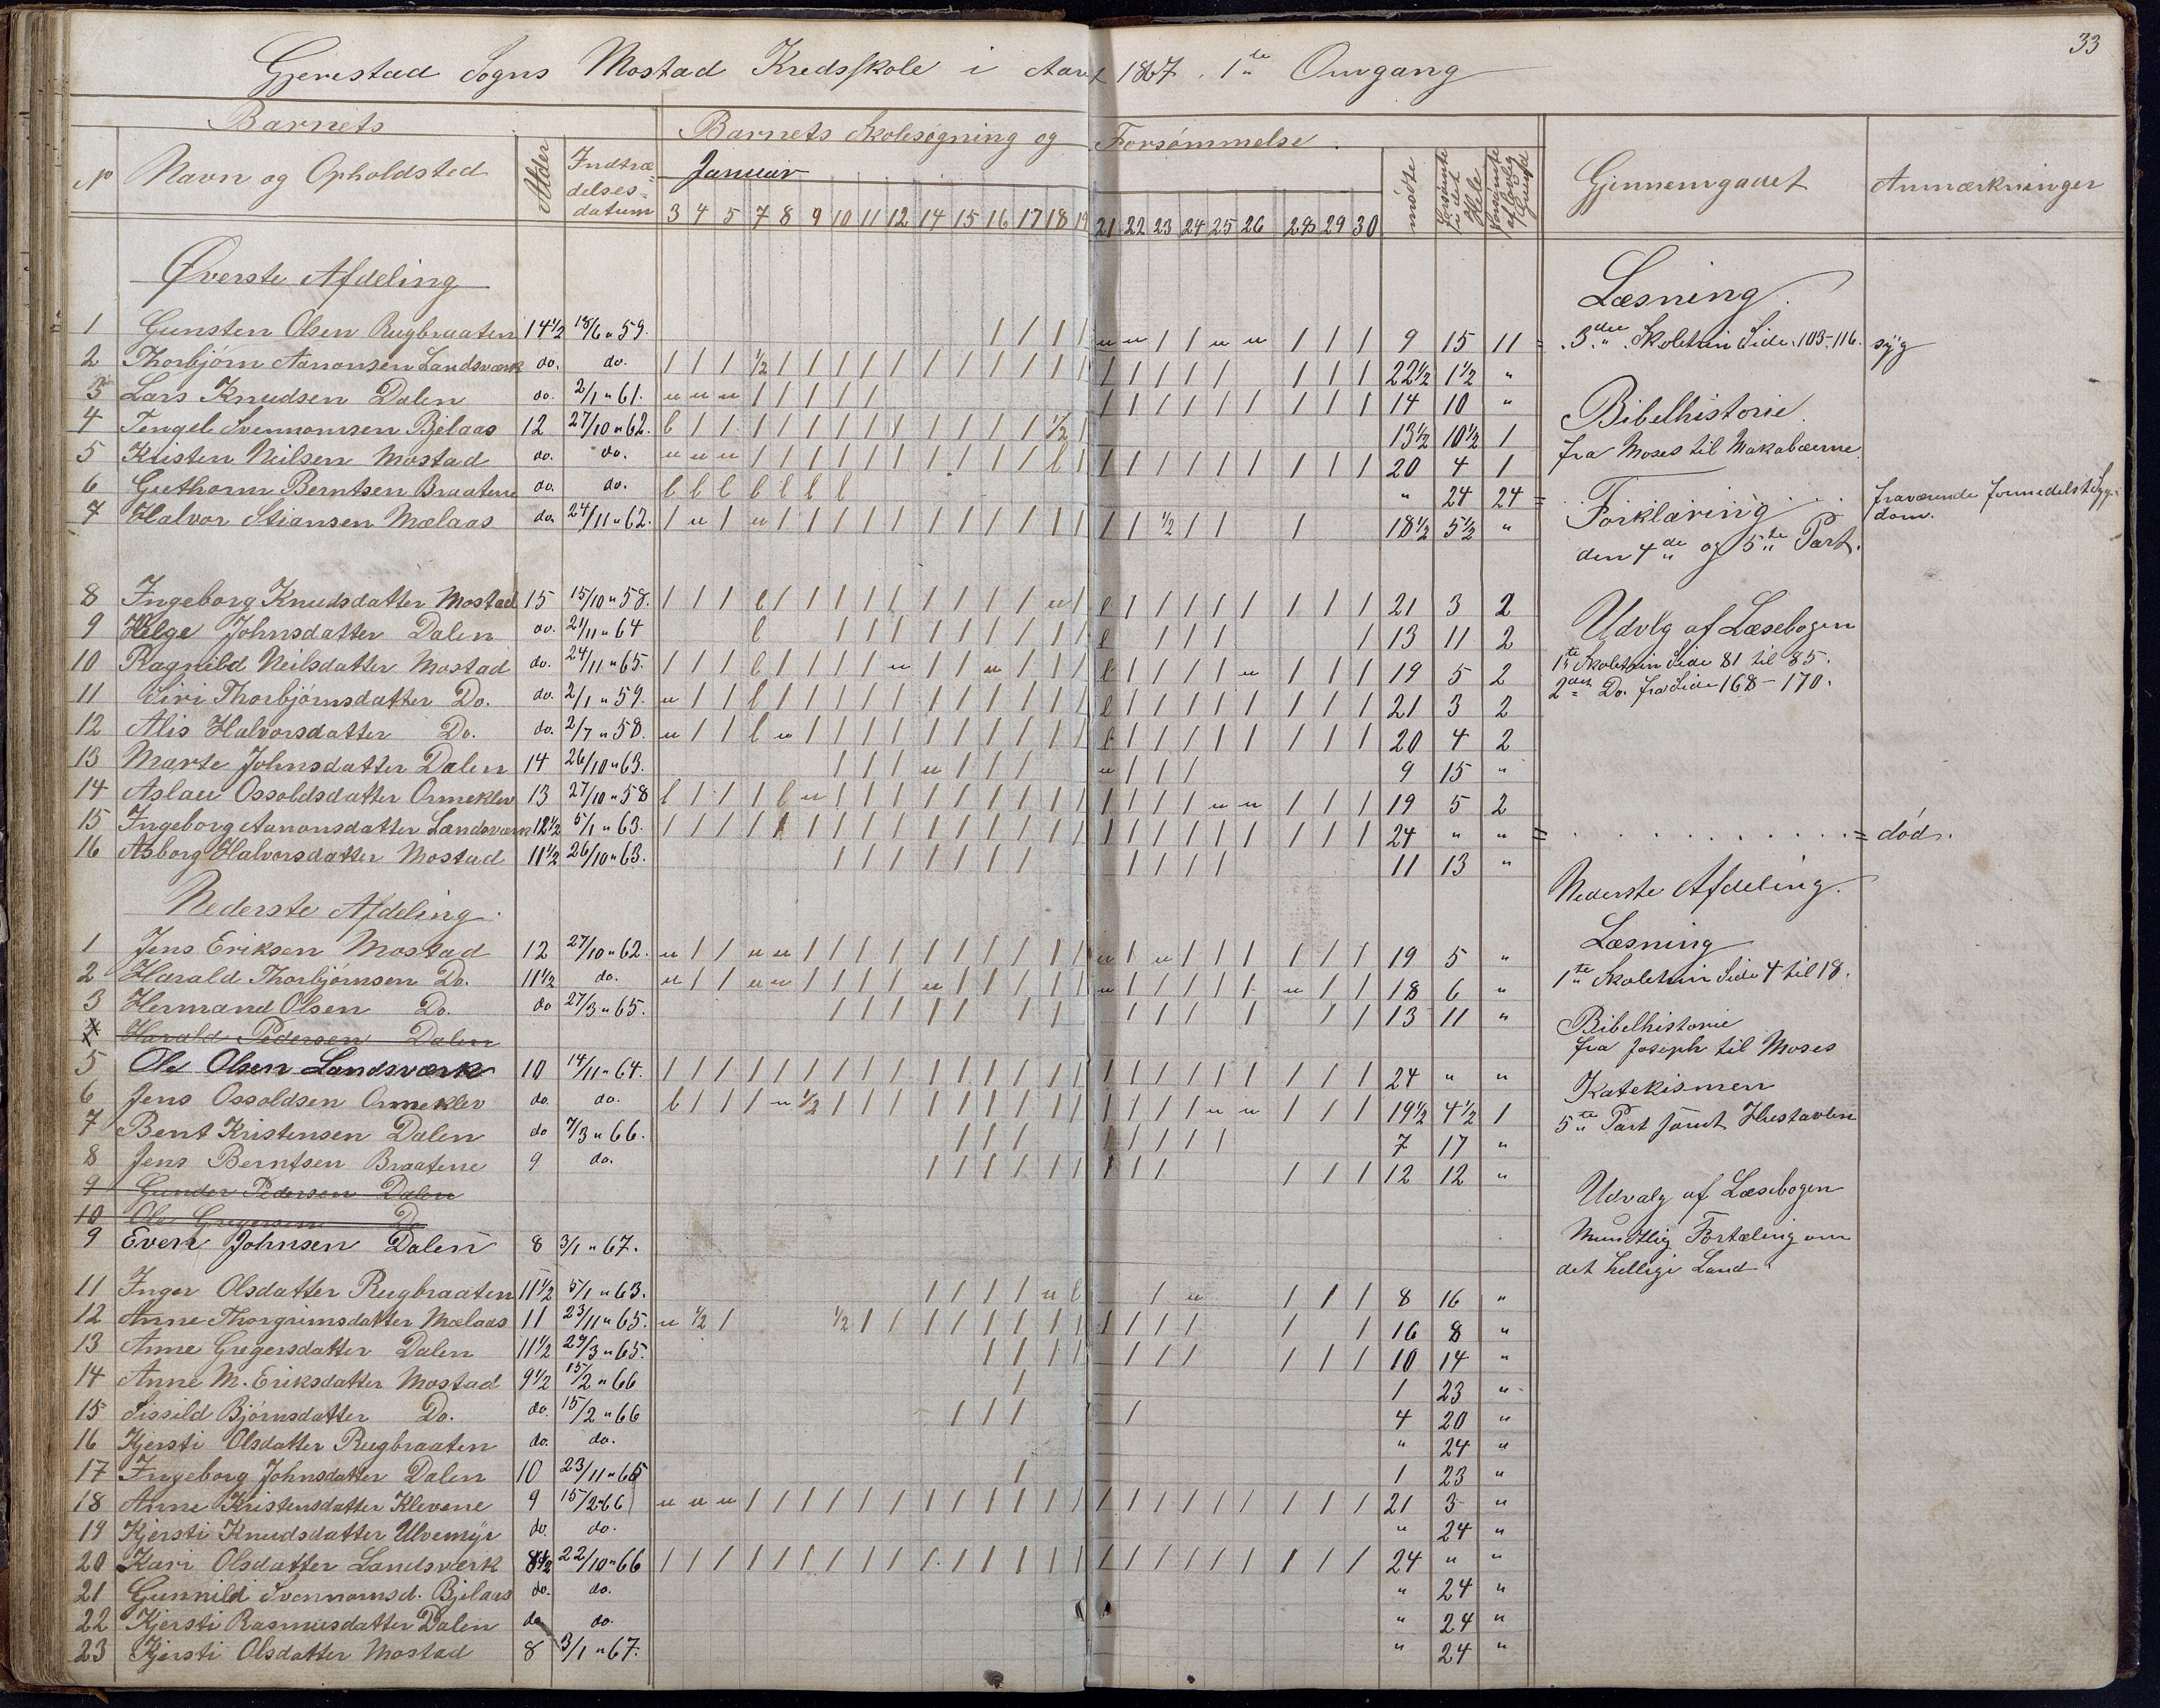 33
Gjerestad Sogns Mostad Kredsskole i Aaret 1867. 1te Omgang
Barnets
Barnets Skolesøgning og Forsømmelse.
No Navn og Opholdsted Alder Indtrædelsesdatum Januar mødte forsømte i det Hele forsømte af lovlig Grund Gjennemgaaet Anmærkninger
3 4 5 7 8 9 10 11 12 14 15 16 17 18 19 21 22 23 24 25 26 28 29 30
Øverste Afdeling
1 Gunsten Olsen Rugbraaten 14½ 18/6 " 59. 9 15 11
2 Thorbjørn Aanonsen Landsværk do. do. 22½ 1½ "
3 Lars Knudsen Dalen do. 2/1 " 61. 14 10 "
4 Tengel Svennomsen Bjelaas 12 27/10 " 62. 13½ 10½ 1
5 Kristen Neilsen Mostad do. do. 20 4 1
6 Guthorm Berntsen Braatene do. do. " 24 24
7 Halvor Stiansen Mælaas do. 24/11 " 62. 18½ 5½ "
8 Ingeborg Knudsdatter Mostad 15 15/10 " 58. 21 3 2
9 Helge Johnsdatter Dalen do. 21/11 " 64 13 11 2
10 Ragnild Neilsdatter Mostad do. 24/11 " 65. 19 5 2
11 Siri Thorbjørnsdatter Do. do. 2/1 " 59. 21 3 2
12 Alis Halvorsdatter Do. do. 2/7 " 58. 20 4 2
13 Marte Johnsdatter Dalen 14 26/10 " 63. 9 15 "
14 Aslau Ossoldsdatter Ormeklev 13 27/10 " 58 19 5 2
15 Ingeborg Aanonsdatter Landsværk 12½ 5/1 " 63. 24 " "
16 Asborg Halvorsdatter Mostad 11½ 26/10 " 63. 11 13 "
Nederste Afdeling.
1 Jens Eriksen Mostad 12 27/10 " 62. 19 5 "
2 Harald Thorbjørnsen Do. 11½ do. 18 6 "
3 Hermand Olsen Do. do 27/3 " 65. 13 11 "
4 Harald Pedersen Dalen
5 Ole Olsen Landsværk 10 14/11 " 64. 24 " "
6 Jens Ossoldsen Ormeklev do. do. 19½ 4½ 1
7 Bent Kristensen Dalen do 7/3 " 66. 7 17 "
8 Jens Berntsen Braatene 9 do. 12 12 "
9 Gunder Pedersen Dalen
10 Ole Gregersen Do
9 Even Johnsen Dalen 8 3/1 " 67.
11 Inger Olsdatter Rugbraaten 11½ 5/1 " 63. 8 16 "
12 Anne Thorgrimsdatter Mælaas 11 23/11 " 65. 16 8 "
13 Anne Gregersdatter Dalen 11½ 27/3 " 65. 10 14 "
14 Anne M. Eriksdatter Mostad 9½ 15/2 " 66 1 23 "
15 Sissild Bjørnsdatter Do. do. 15/2 " 66 4 20 "
16 Kjersti Olsdatter Rugbraaten do. do. " 24 "
17 Ingeborg Johnsdatter Dalen 10 23/11 " 65 1 23 "
18 Anne Kristensdatter Klevene 9 15/2 " 66 21 3 "
19 Kjersti Knudsdatter Ulvemyr do. do. " 24 "
20 Kari Olsdatter Landsværk 8½ 22/10 " 66 24 " "
21 Gunnild Svennomsd. Bjelaas do. do. " 24 "
22 Kjersti Rasmusdatter Dalen do do. " 24 "
23 Kjersti Olsdatter Mostad 8 3/1 " 67. " 24 "
Læsning.
3die Skoletrin Side 103-116. syg
Bibelhistorie.
fra Moses til Makabæerne.
Forklaring
den 4de og 5te Part.
fraværende formedelst Sygdom.
Udvlg af Læsebogen
1te Skoletrin Side 81 til 85.
2det Do. fra Side 168 - 170.
død.
Nederste Afdeling.
Læsning
1te Skoletrin Side 4 til 18.
Bibelhistorie
fra Joseph til Moses
Katekismen
5te Part samt Hustavlen
Udvalg af Læsebogen
Mundtlig Fortæling om
det hellige Land